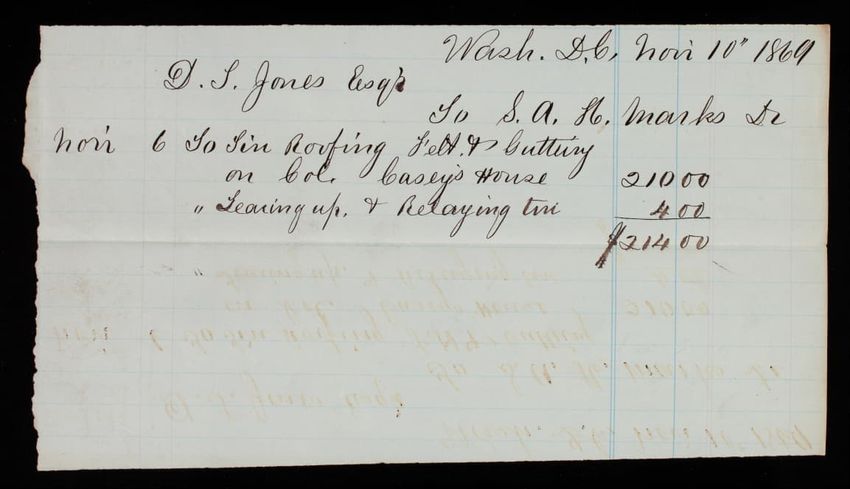 Wash. D.C, Nov 10" 1869
D. S. Jones Esqr
To S. A. H. Marks Dr
Nov 6 To Tin Roofing Felt & Guttering
on Col. Casey's House 210 00
" Tearing up, & Relaying tin 4 00
$214 00